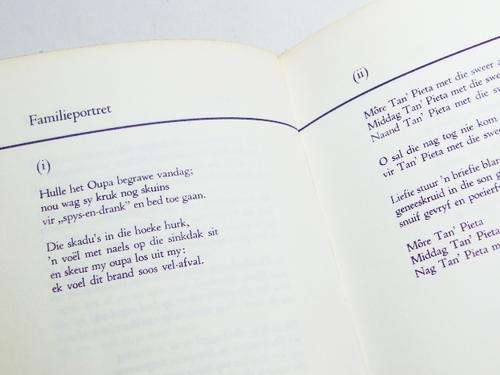 Familieportret
(i)
Hulle het Oupa begrawe vandag;
nou wag sy kruk nog skuins
vir „spys-en-drank” en bed toe gaan.
Die skadu's in die hoeke hurk,
'n voël met naels op die sinkdak sit
en skeur my oupa los uit my:
ek voel dit brand soos vel-afval.
(ii)
Môre Tan' Pieta met die sweer
Middag Tan' Pieta met die swee
Naand Tan' Pieta met die s
O sal die nag tog nie kom
vir Tan' Pieta met die swe
Liefie stuur 'n briefie blan
geneeskruid in die son g
snuif gevryf en poeierf
Môre Tan' Pieta
Middag Tan' Pieta
Nag Tan' Pieta m